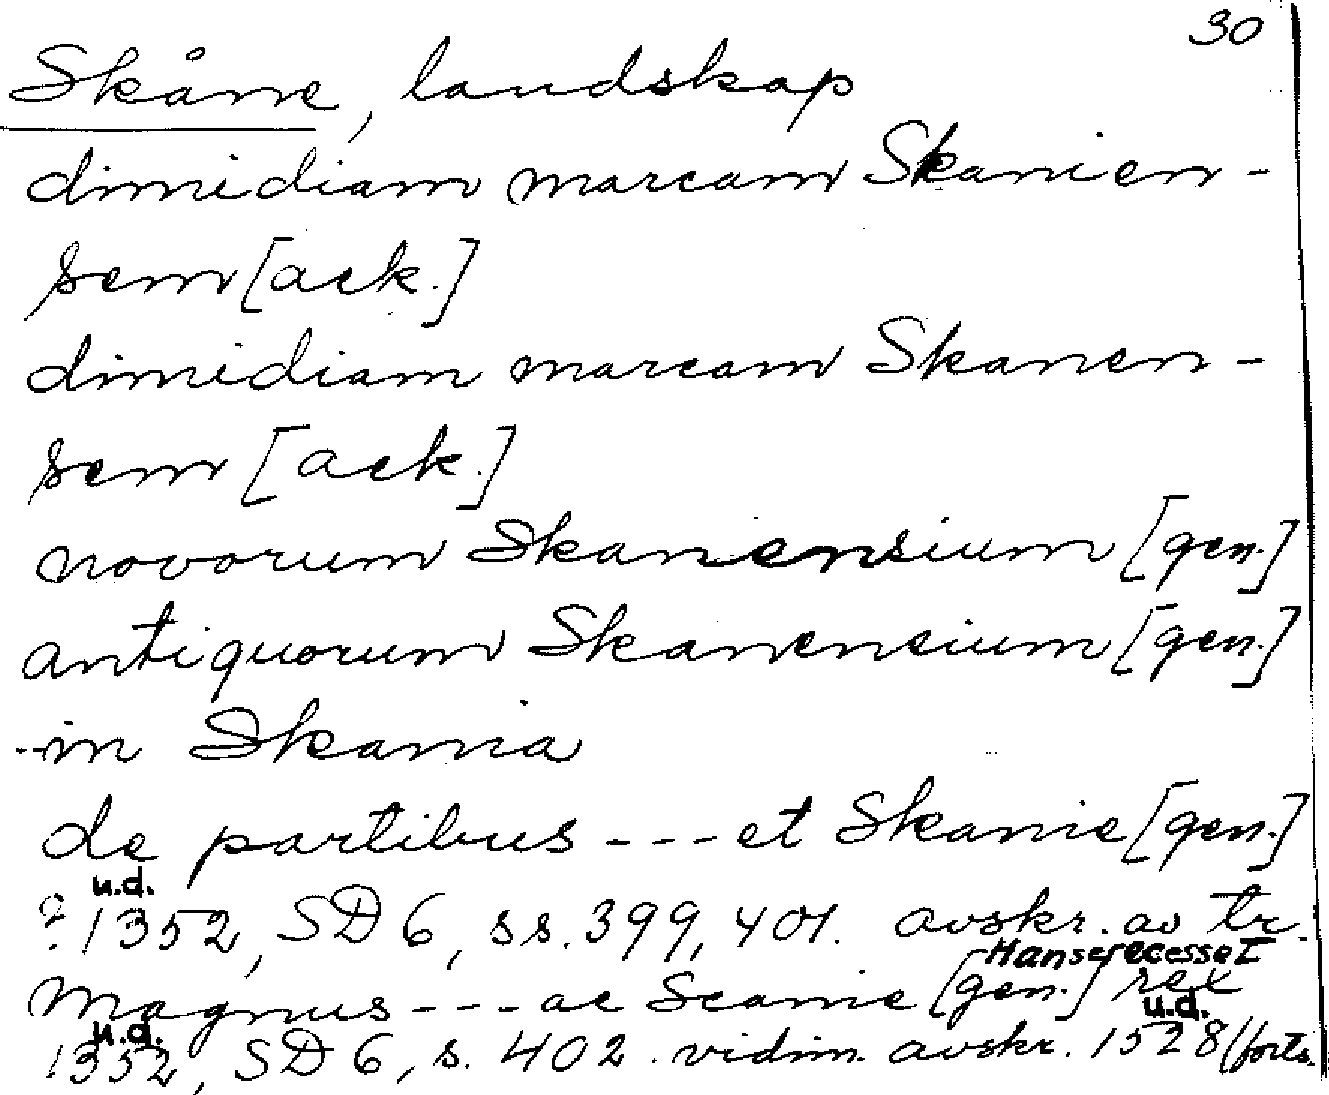 30
Skåne, landskap
dimidiam marcam Skanien-
sem [ack.]
dimidiam marcam Skanen-
sem [ack.]
novorum Skanensium [gen.]
antiquorum Skanensium [gen.]
in Skania
de partibus --- et Skanie [gen.]
u.d.
? 1352, SD 6, ss. 399, 401. avskr. av tr.
Hanserecesse I
Magnus --- ac Scanie [gen.] rex
u.d. u.d.
1352, SD 6, s. 402. vidim. avskr. 1528 (forts.